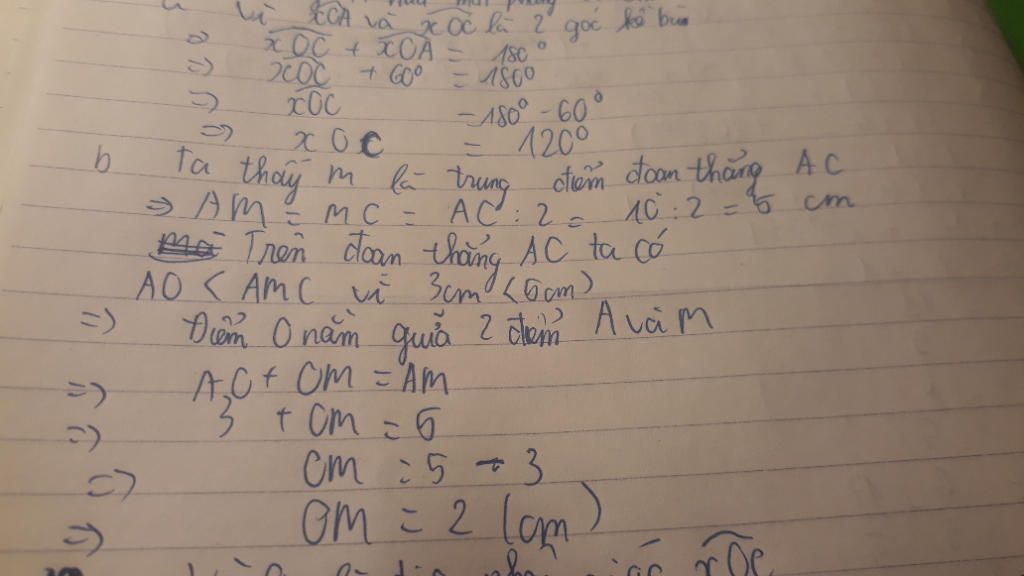 vì xOA và xOC là 2 góc kề bù
=> xOC + xOA = 180°
=> xOC + 60° = 180°
=> xOC = 180° - 60°
=> xOC = 120°
b Ta thấy M là trung điểm đoạn thẳng AC
=> AM = MC = AC : 2 = 10 : 2 = 5 cm
Trên đoạn thẳng AC ta có
AO < AMC vì 3cm < 5cm)
=> Điểm O nằm giữa 2 điểm A và M
=> AO + OM = AM
=> 3 + OM = 5
=> OM = 5 - 3
=> OM = 2 (cm)
xOC